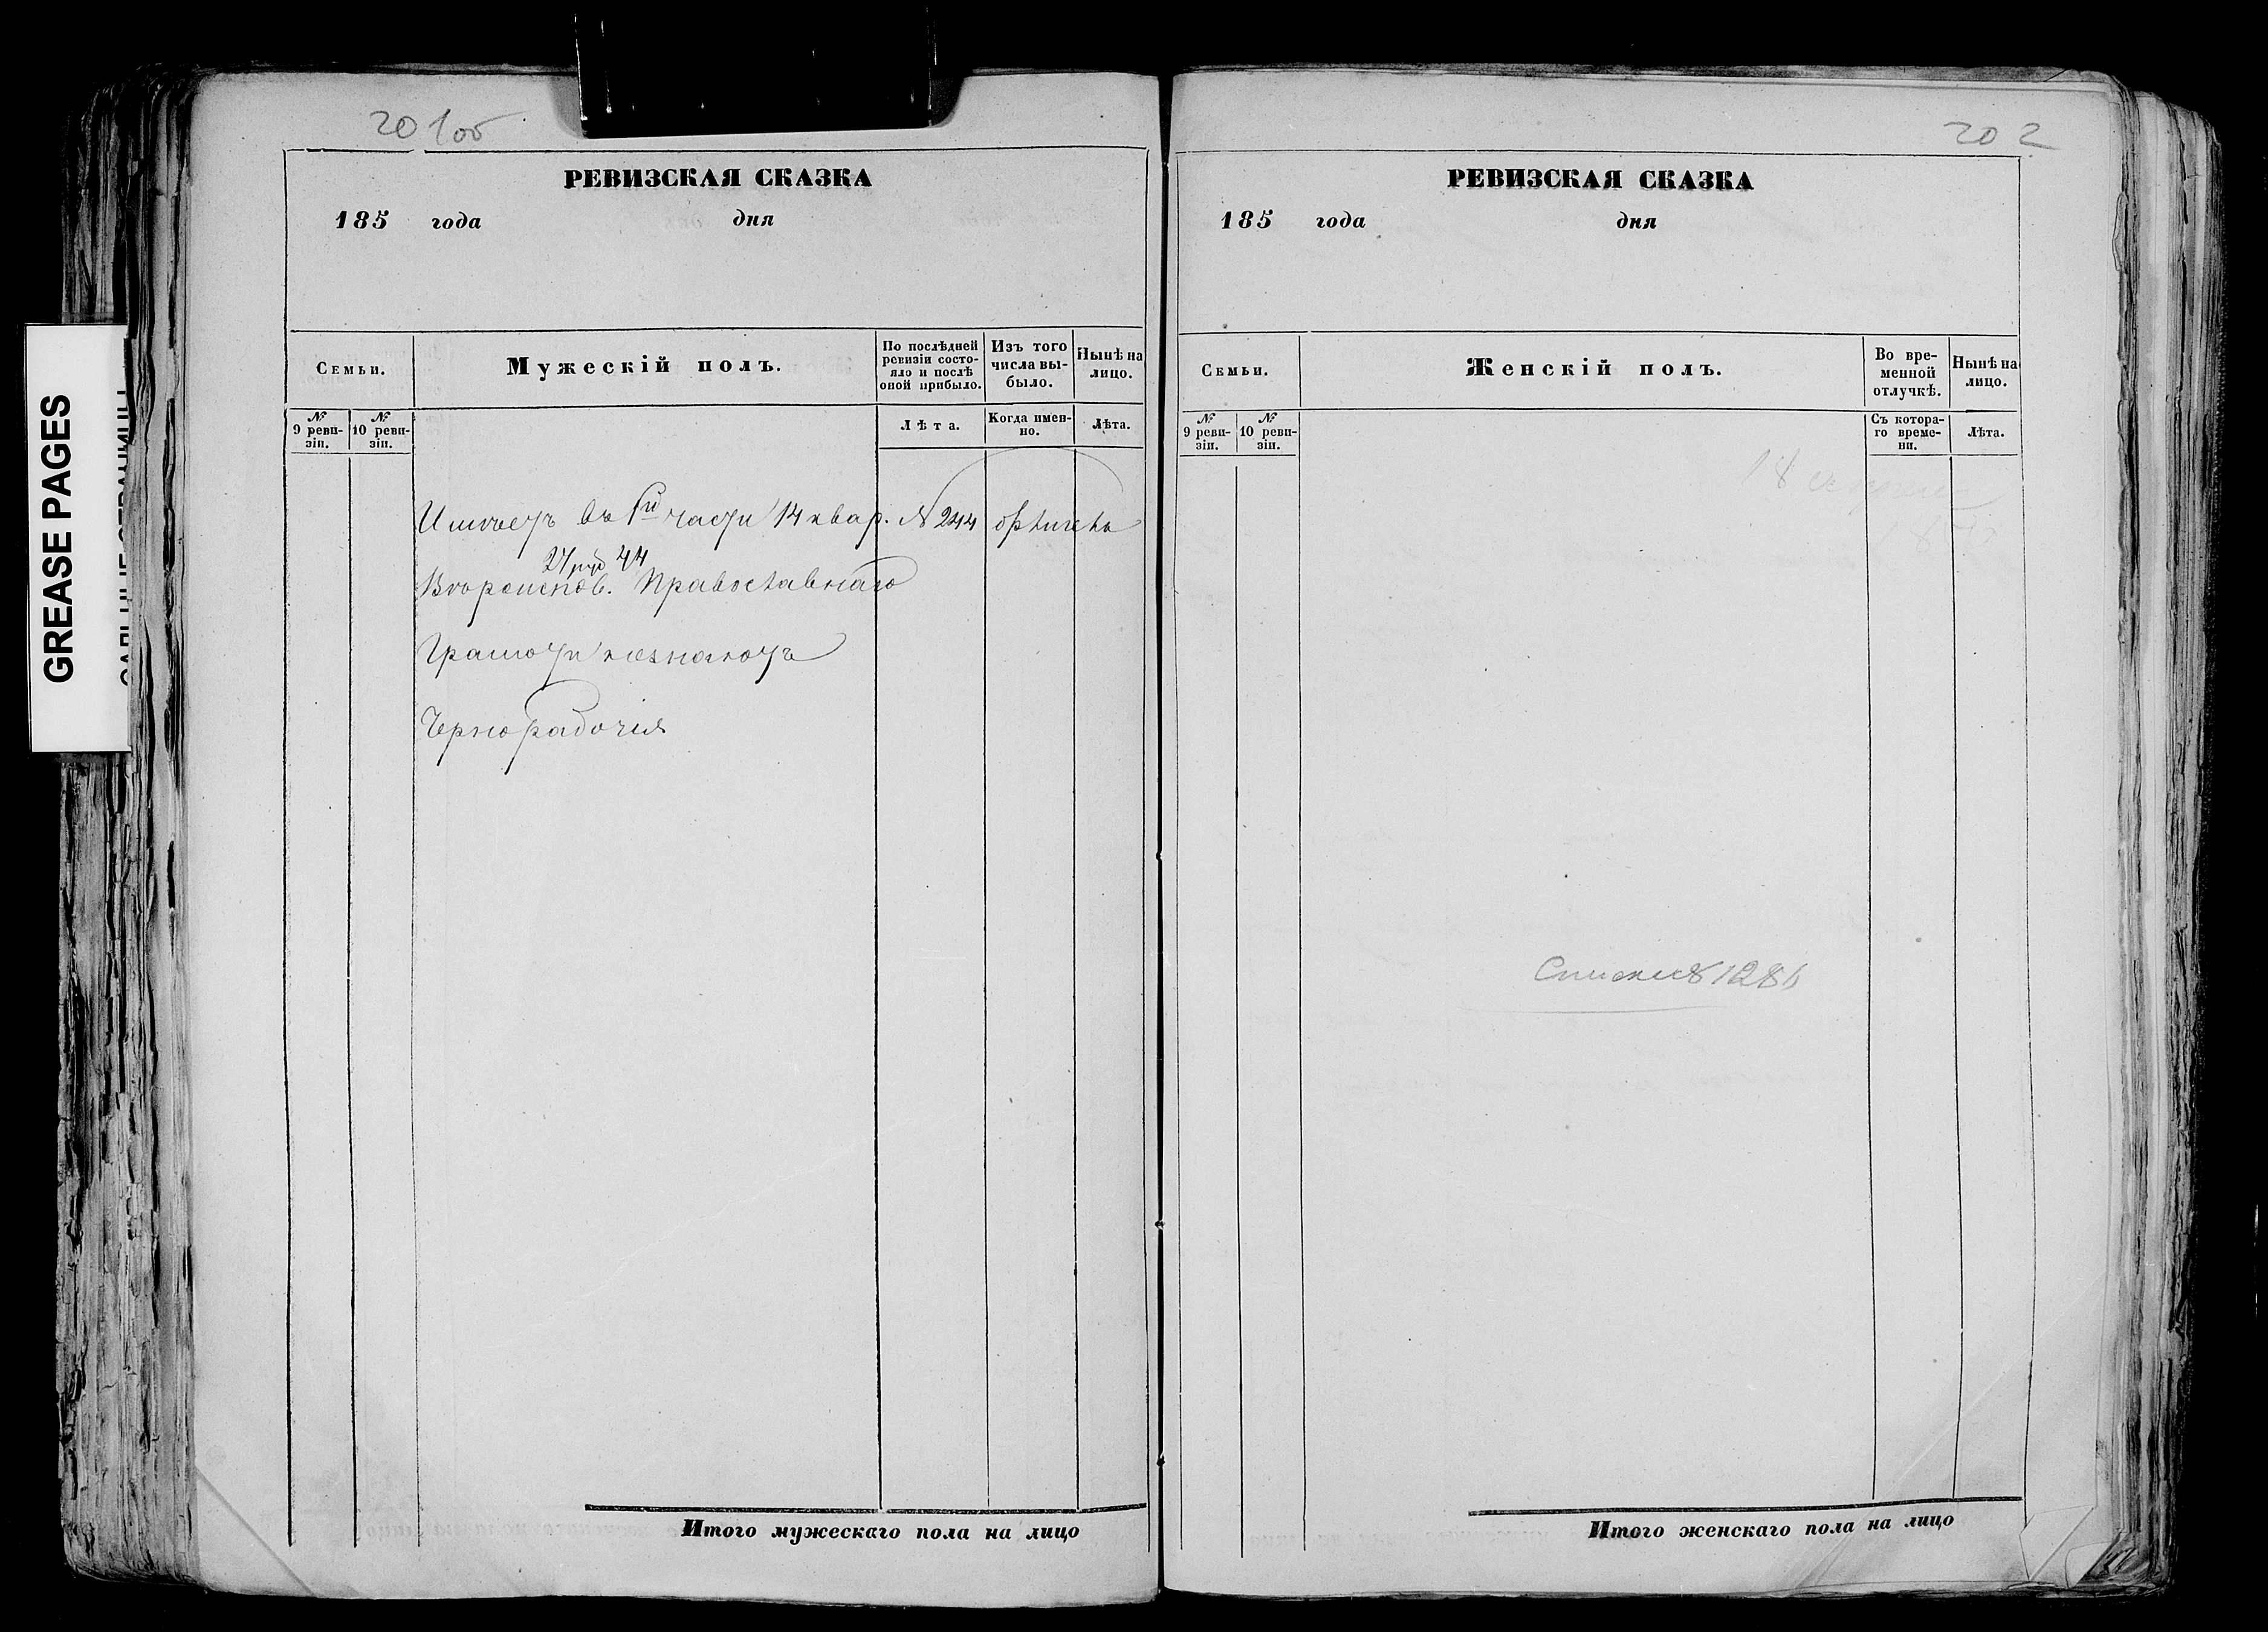 201об
РЕВИЗСКАЯ СКАЗКА
185 года дня
Семьи.
Мужескій полъ.
По послѣдней ревизіи состояло и послѣ оной прибыло.
Изъ того числа выбыло.
Нынѣ на лицо.
№ 9 ревизіи.
№ 10 ревизіи.
Лѣта.
Когда именно.
Лѣта.
Имѣетъ въ 1й части 14 квар. № 244
44
Вѣроисповѣ. Православнаго
Грамоти незнаютъ
Чернорабочія
Итого мужескаго пола на лицо
202
РЕВИЗСКАЯ СКАЗКА
185 года дня
Семьи.
Женскій полъ.
Во временной отлучкѣ.
Нынѣ на лицо.
№ 9 ревизіи.
№ 10 ревизіи.
Съ котораго времени.
Лѣта.
18
Итого женскаго пола на лицо
GREASE PAGES